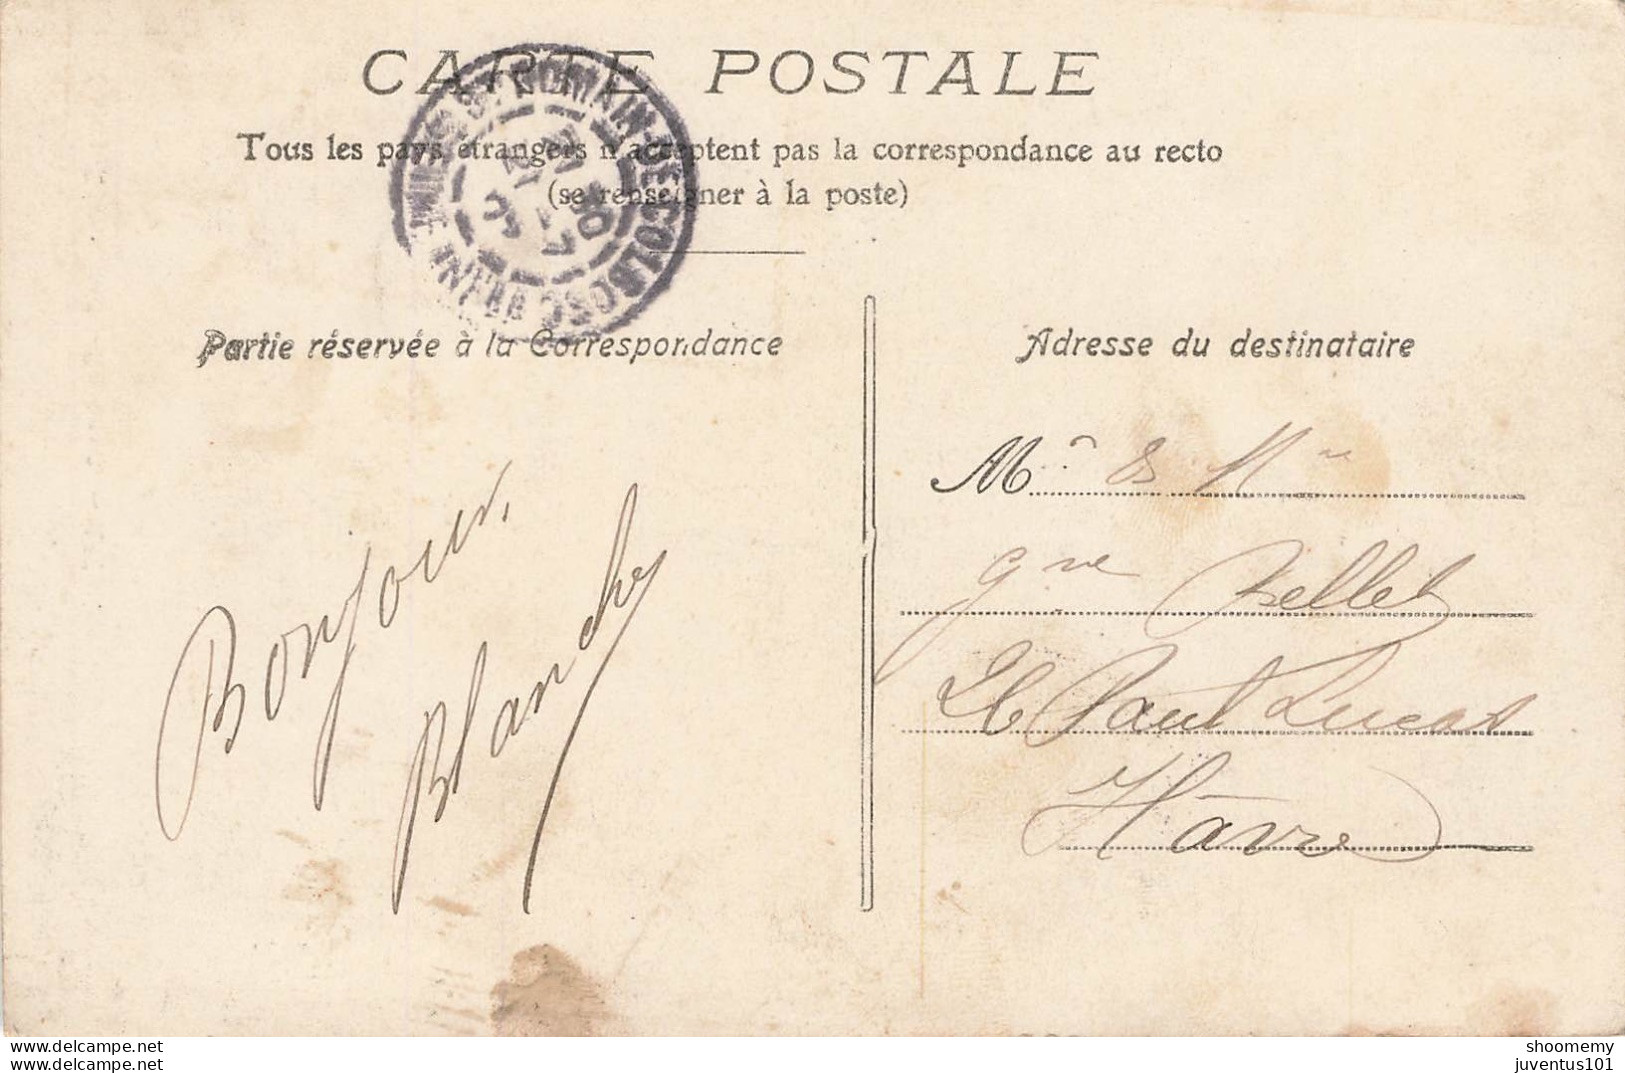 CARTE POSTALE
Tous les pays étrangers n'acceptent pas la correspondance au recto
(se renseigner à la poste)
ST ROMAIN-DE-COLBOSC
SEINE INFRE
Partie réservée à la Correspondance
Adresse du destinataire
Bonjour,
Blanche
Mr & Mme
gve
26 Paul Lucas
Hâvre
www.delcampe.net
www.delcampe.net
shoomemy
juventus101